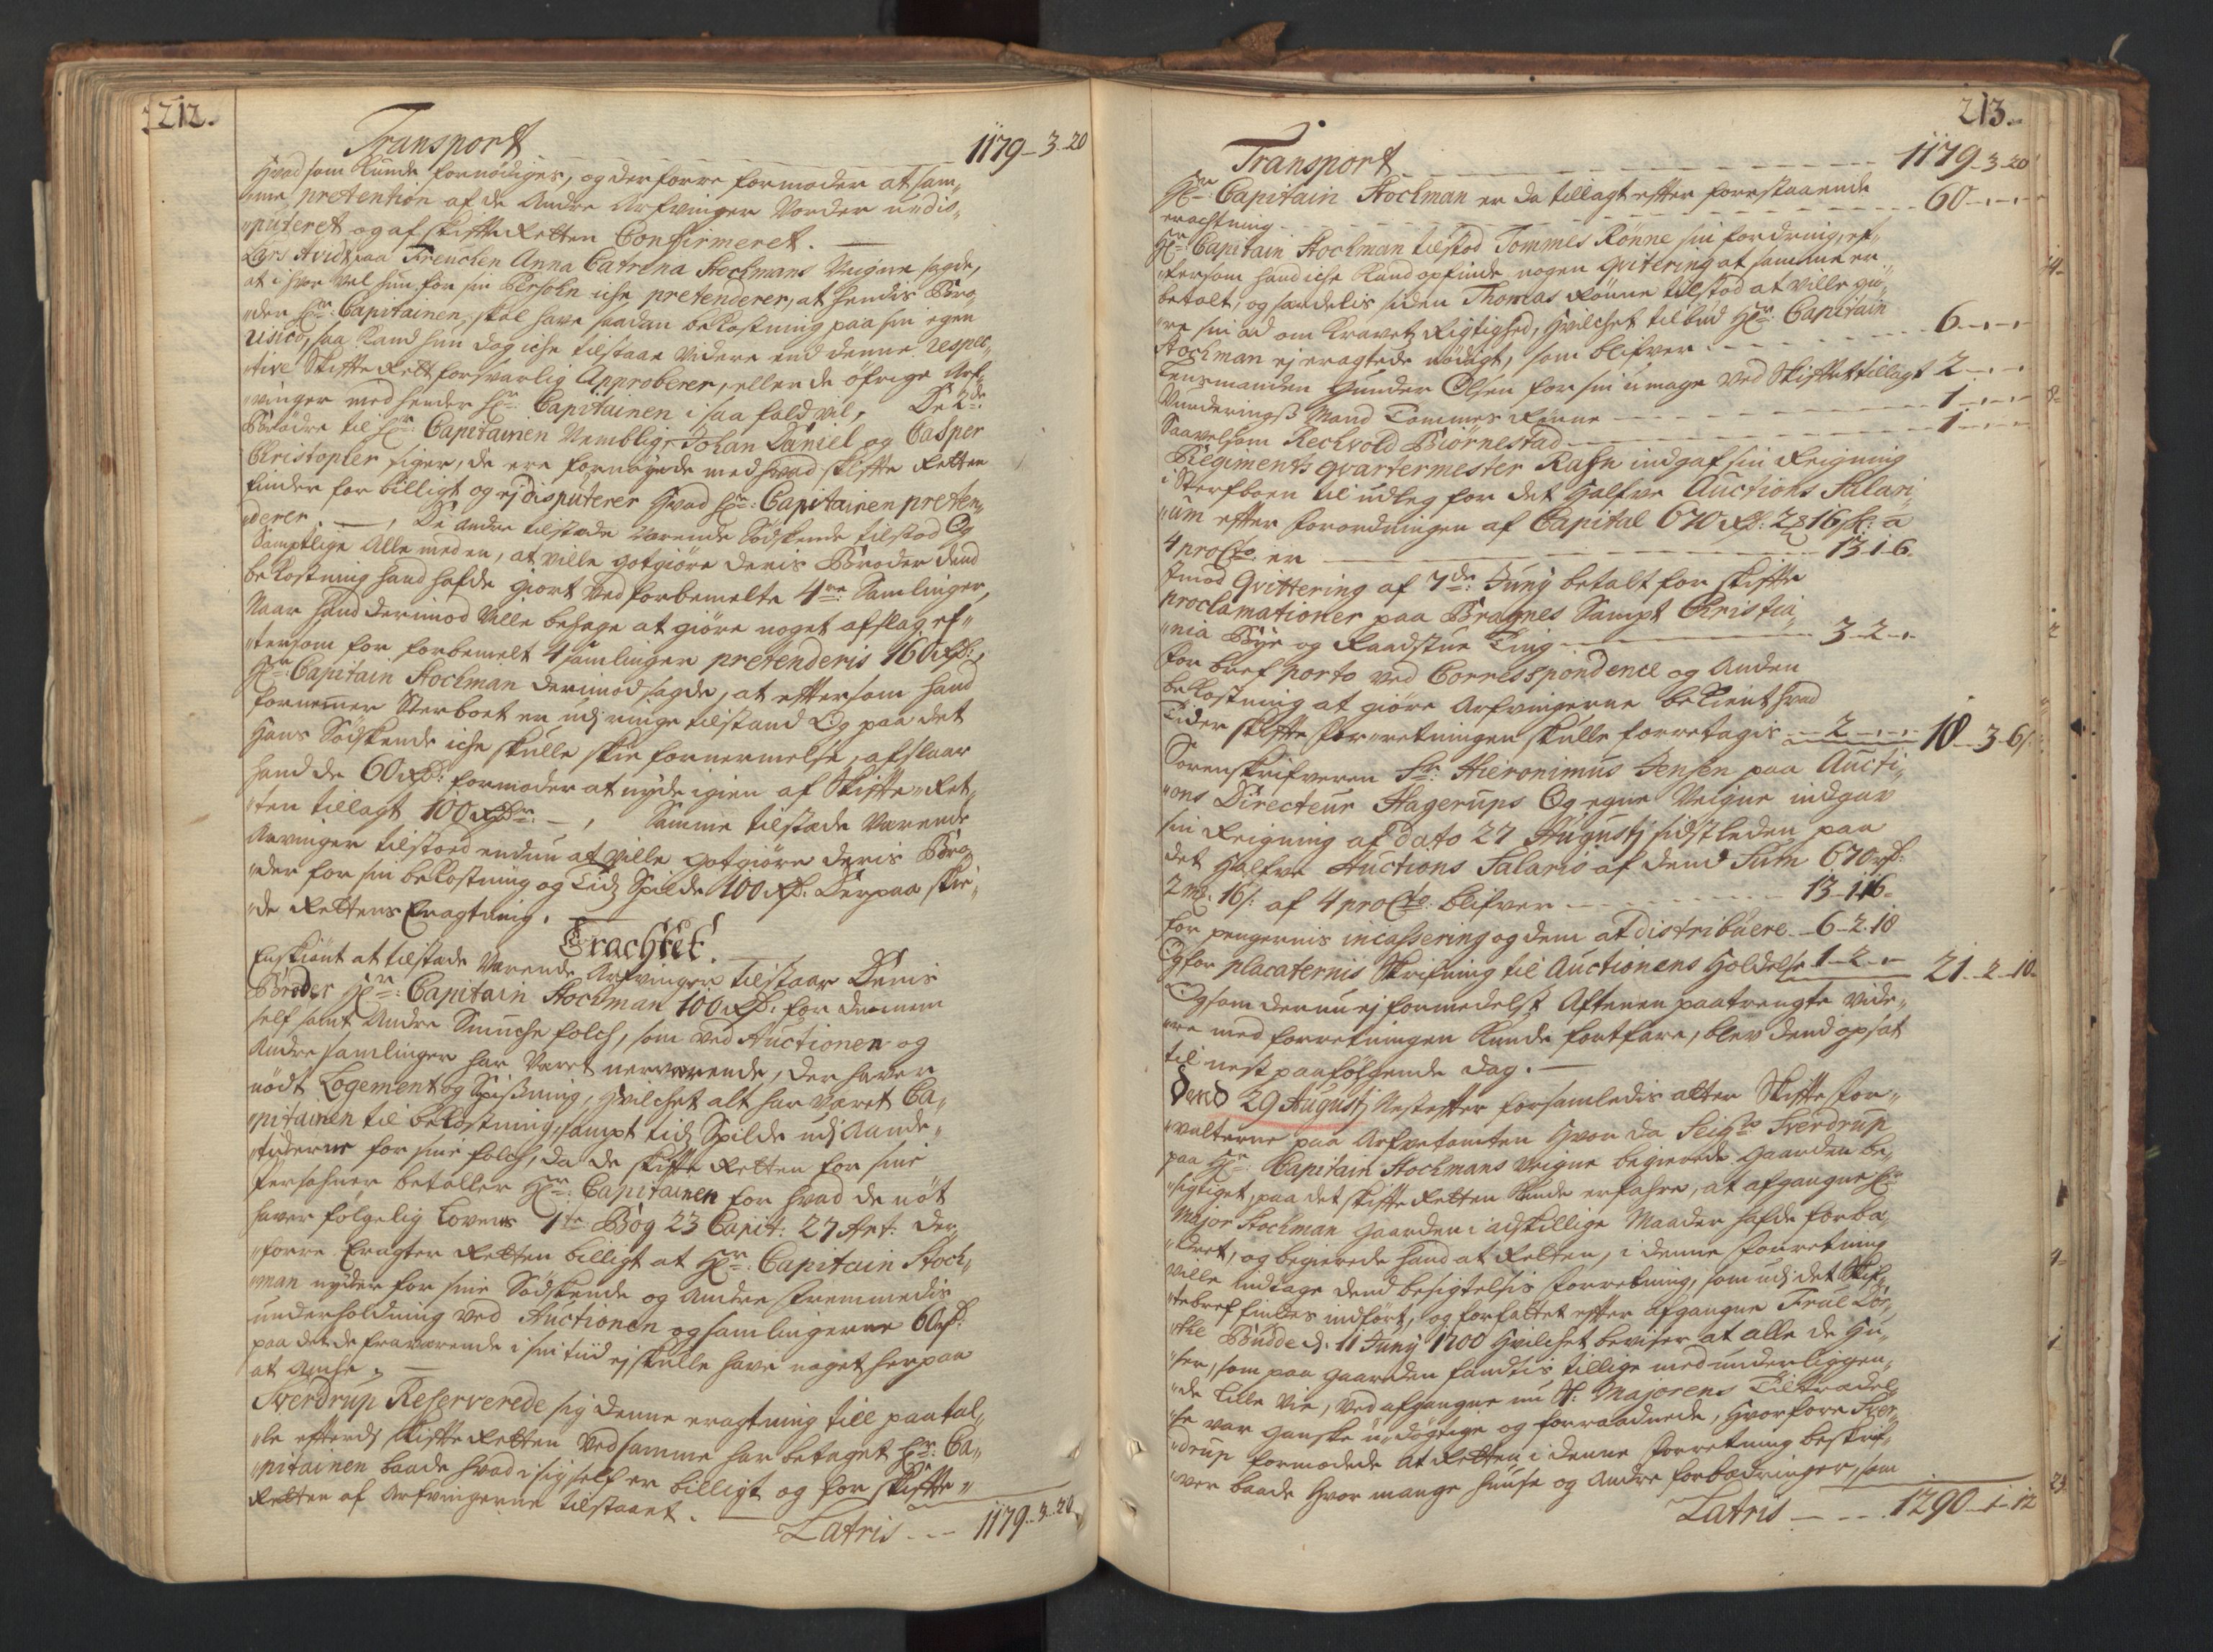 212.
Transport 1179-3-20
Hvad som Kunde fornødiges, og derforre formoder at sam„
„me pretention af de Andre Arfvinger Vorder u„dis„
„puteret og af skifte Retten Confirmeret. —
Lars Hvid paa Freuchen Anna Catrena Stockmans Veigne sagde,
at i hvor vel hun for sin Persohn iche pretenderer, at hendis Bro„
„der Hr: Capitainen skal have saadan bekostning paa sin egen
risico, saa Kand hun dog iche tilstaae Videre end denne respec„
„tive Skifte Rett forsvarlig Approberer, eller de øfrige Arf„
„vinger med hender Hr: Capitainen i saa fald vil, De 2de
Brødre til Hr: Capitainen Nemblig, Johan Daniel og Casper
Christopher siger, de ere fornøyede med hvad skifte Retten
finder for billigt og ej disputerer Hvad Hr: Capitainen preten„
„derer. —, De andre tilstæde værende Södskende tilstod Og
Samptlige Alle med en, at ville gotgiöre deris Broder dend
bekostning hand hafde giort ved forbemelte 4re Samlinger,
Naar hand derimod Ville behage at giöre noget afslag ef„
„tersom for forbemelt 4 samlinger pretenderis 160 Rd:,
Hr: Capitain Stockman derimod sagde, at eftersom hand
fornemmer Sterboet er udj ringe tilstand Og paa det
Hans Södskende iche skulle skee fornermelse, afslaar
hand de 60 Rd: formoder at nyde igien af Skifte„Ret„
„ten tillagt 100 Rdr: —, Samme tilstæde Værende
Arvinger tilstoed endnu at ville gotgiöre deris Bro„
„der for sin bekostning og Tids Spilde 100 Rd: Derpaa skee„
„de Rettens Eragtning.
Erachtet.
Enskiönt at tilstæde Værende Arfvinger tilstaar Deris
Broder Hr: Capitain Stockman 100 Rd: for dennem
self samt Andre Smuche folch, som ved Auctionen og
Andre samlinger har Været nerværende, der haver
nödt Logement og Spisning, hvilchet alt har været Ca„
„pitainen til bekostning, sampt tids Spilde udj Aande„
„tiderne for sine folch, da de skifte Retten for sine
Persohner betaller Hr: Capitainen for hvad de nöt
haver fölgelig Lovens 1te Bog 23 Capit: 27 Art: der„
„forre Eragter Retten billigt at Hr: Capitain Stock„
„man nyder for sine Södskende og Andre fremmedis
underholdning ved Auctionen og samlingerne 60 rd:
paa det de fraværende i sin tiid ej skulle have noget herpaa
at Anche.
Sverdrup Reserverede sig denne eragtning till paatal„
„le efterdj skifte Retten ved samme har betaget Hr: Ca„
„pitainen baade hvad i sig self er billigt og for skifte„
Retten af Arfvingerne tilstaaet.
Latris --- 1179-3-20
213.
Transport 1179-3-20
Hr: Capitain Stockman er da tillagt efter forestaaende
eragtning 60-,-,-
Hr: Capitain Stockman tilstod Tommes Rönne sin fordring, ef„
„tersom hand iche Kand opfinde nogen Qvitering at samme er
betalt, og saadelis siden Thomas Rönne tilstod at ville giö„
„re sin ed om Kravets Rigtighed, hvilchet tilbud Hr: Capitain
Stockman ej eragtede nödigt, som blifver 6-,-,-
Lensmanden Gunder Olsen for sin umage ved Skiftet tillagt 2-,-,-
Vurderings Mand Tommes Rönne 1-,-,-
Saavelsom Reckvold Biörnestad 1-,-,-
Regiments qvartermester Rahn indgaf sin Reigning
i Sterfboen til udleg for det Halfve Auctions Salari„
„um efter forordningen af Capital 670 Rd: 2 16 sk: a
4 pro Cto er 13-1-6.
Imod Qvittering af 7de Juny betalt for skifte
proclamationer paa Bragnes Sampt Christia„
„nia Bye og Raadstue Ting 3-2-,-
For bref porto ved Correspondence og Anden
bekostning at giöre Arfvingerne bekient hvad
Tider skifte forretningen skulle forretagis 2-,-,- 18-3-6
Sorenskrifveren Sr: Hieronimus Jensen paa Aucti„
„ons Directeur Hagerups Og egne Veigne indgav
sin Reigning af dato 27 Augustj sidstleden paa
det Halfve Auctions Salaris af dend Sum 670 rd:
2 mk: 16 s: af 4 pro Cto: blifver 13-1-16-
for pengernis incassering og dem at distribuere 6-2-18
Og for placaternis skrifning til Auctionens holdelse 1-2-,- 21-2-10-
Og som der nu ej formedelst Aftenen paatrengte vide„
„re med forretningen Kunde fortfare, blev dend opsat
til nest paafölgende dag. —
Dend 29 Augustj Nestefter forsamledis atter Skifte for„
„valterne paa Arfvetomten Hvor da Seigr Sverdrup
paa Hr: Capitain Stockmans Veigne begierede Gaarden be„
„sigtiget, paa det skifte Retten Kunde erfahre, at afgangne Hr
Major Stockman Gaarden i adskillige Maader hafde forbe„
„dret, og begierede hand at Retten, i denne forretning
ville Indtage dend besigtelsis forretning, som udj det skif„
„tebref findes indfört, og forfattet efter afgangne Frue Dor„
„the Budde d: 11 Juny 1700 hvilchet beviser at alle de hu„
„ser, som paa Gaarden fandtis tillige med underliggen„
„de Lille Vie, ved afgangne nu H: Majorens Tiltrædel„
„se var ganske u„dögtige og forraadnede, hvorfore Sver„
„drup formodede at Retten i denne forretning beskref„
„ver baade hvor mange huuse og Andre forbedringer, som
Latris --- 1290-1-12